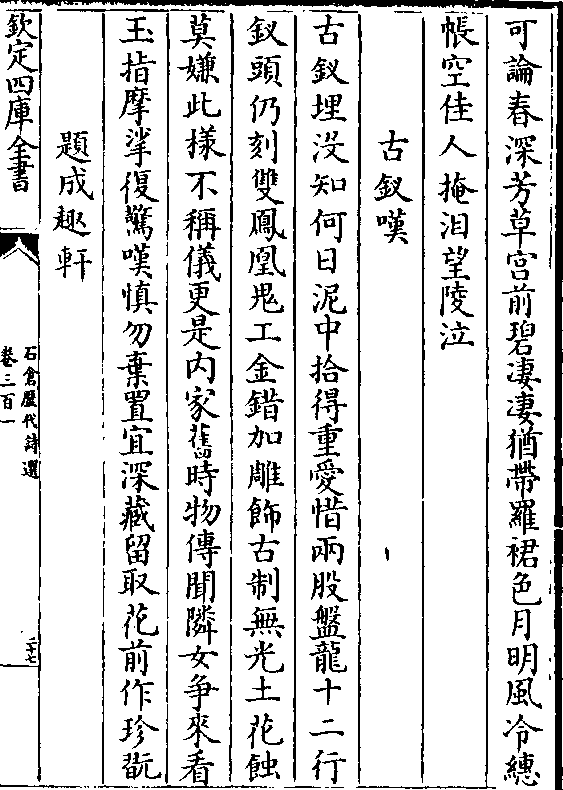 可論春深芳草宫前碧凄凄猶帶羅裙色月明風冷繐
帳空佳人掩泪望陵泣
古釵嘆
古釵埋没知何日泥中拾得重愛惜兩股盤龍十二行
釵頭仍刻雙鳳凰鬼工金錯加雕飾古制無光土花蝕
莫嫌此様不稱儀更是内家舊時物傳聞隣女争來看
玉指摩挲復驚嘆慎勿棄置宜深藏留取花前作珍翫
題成趣軒
欽定四庫全書
石倉歴代詩選
卷三百一
二十七